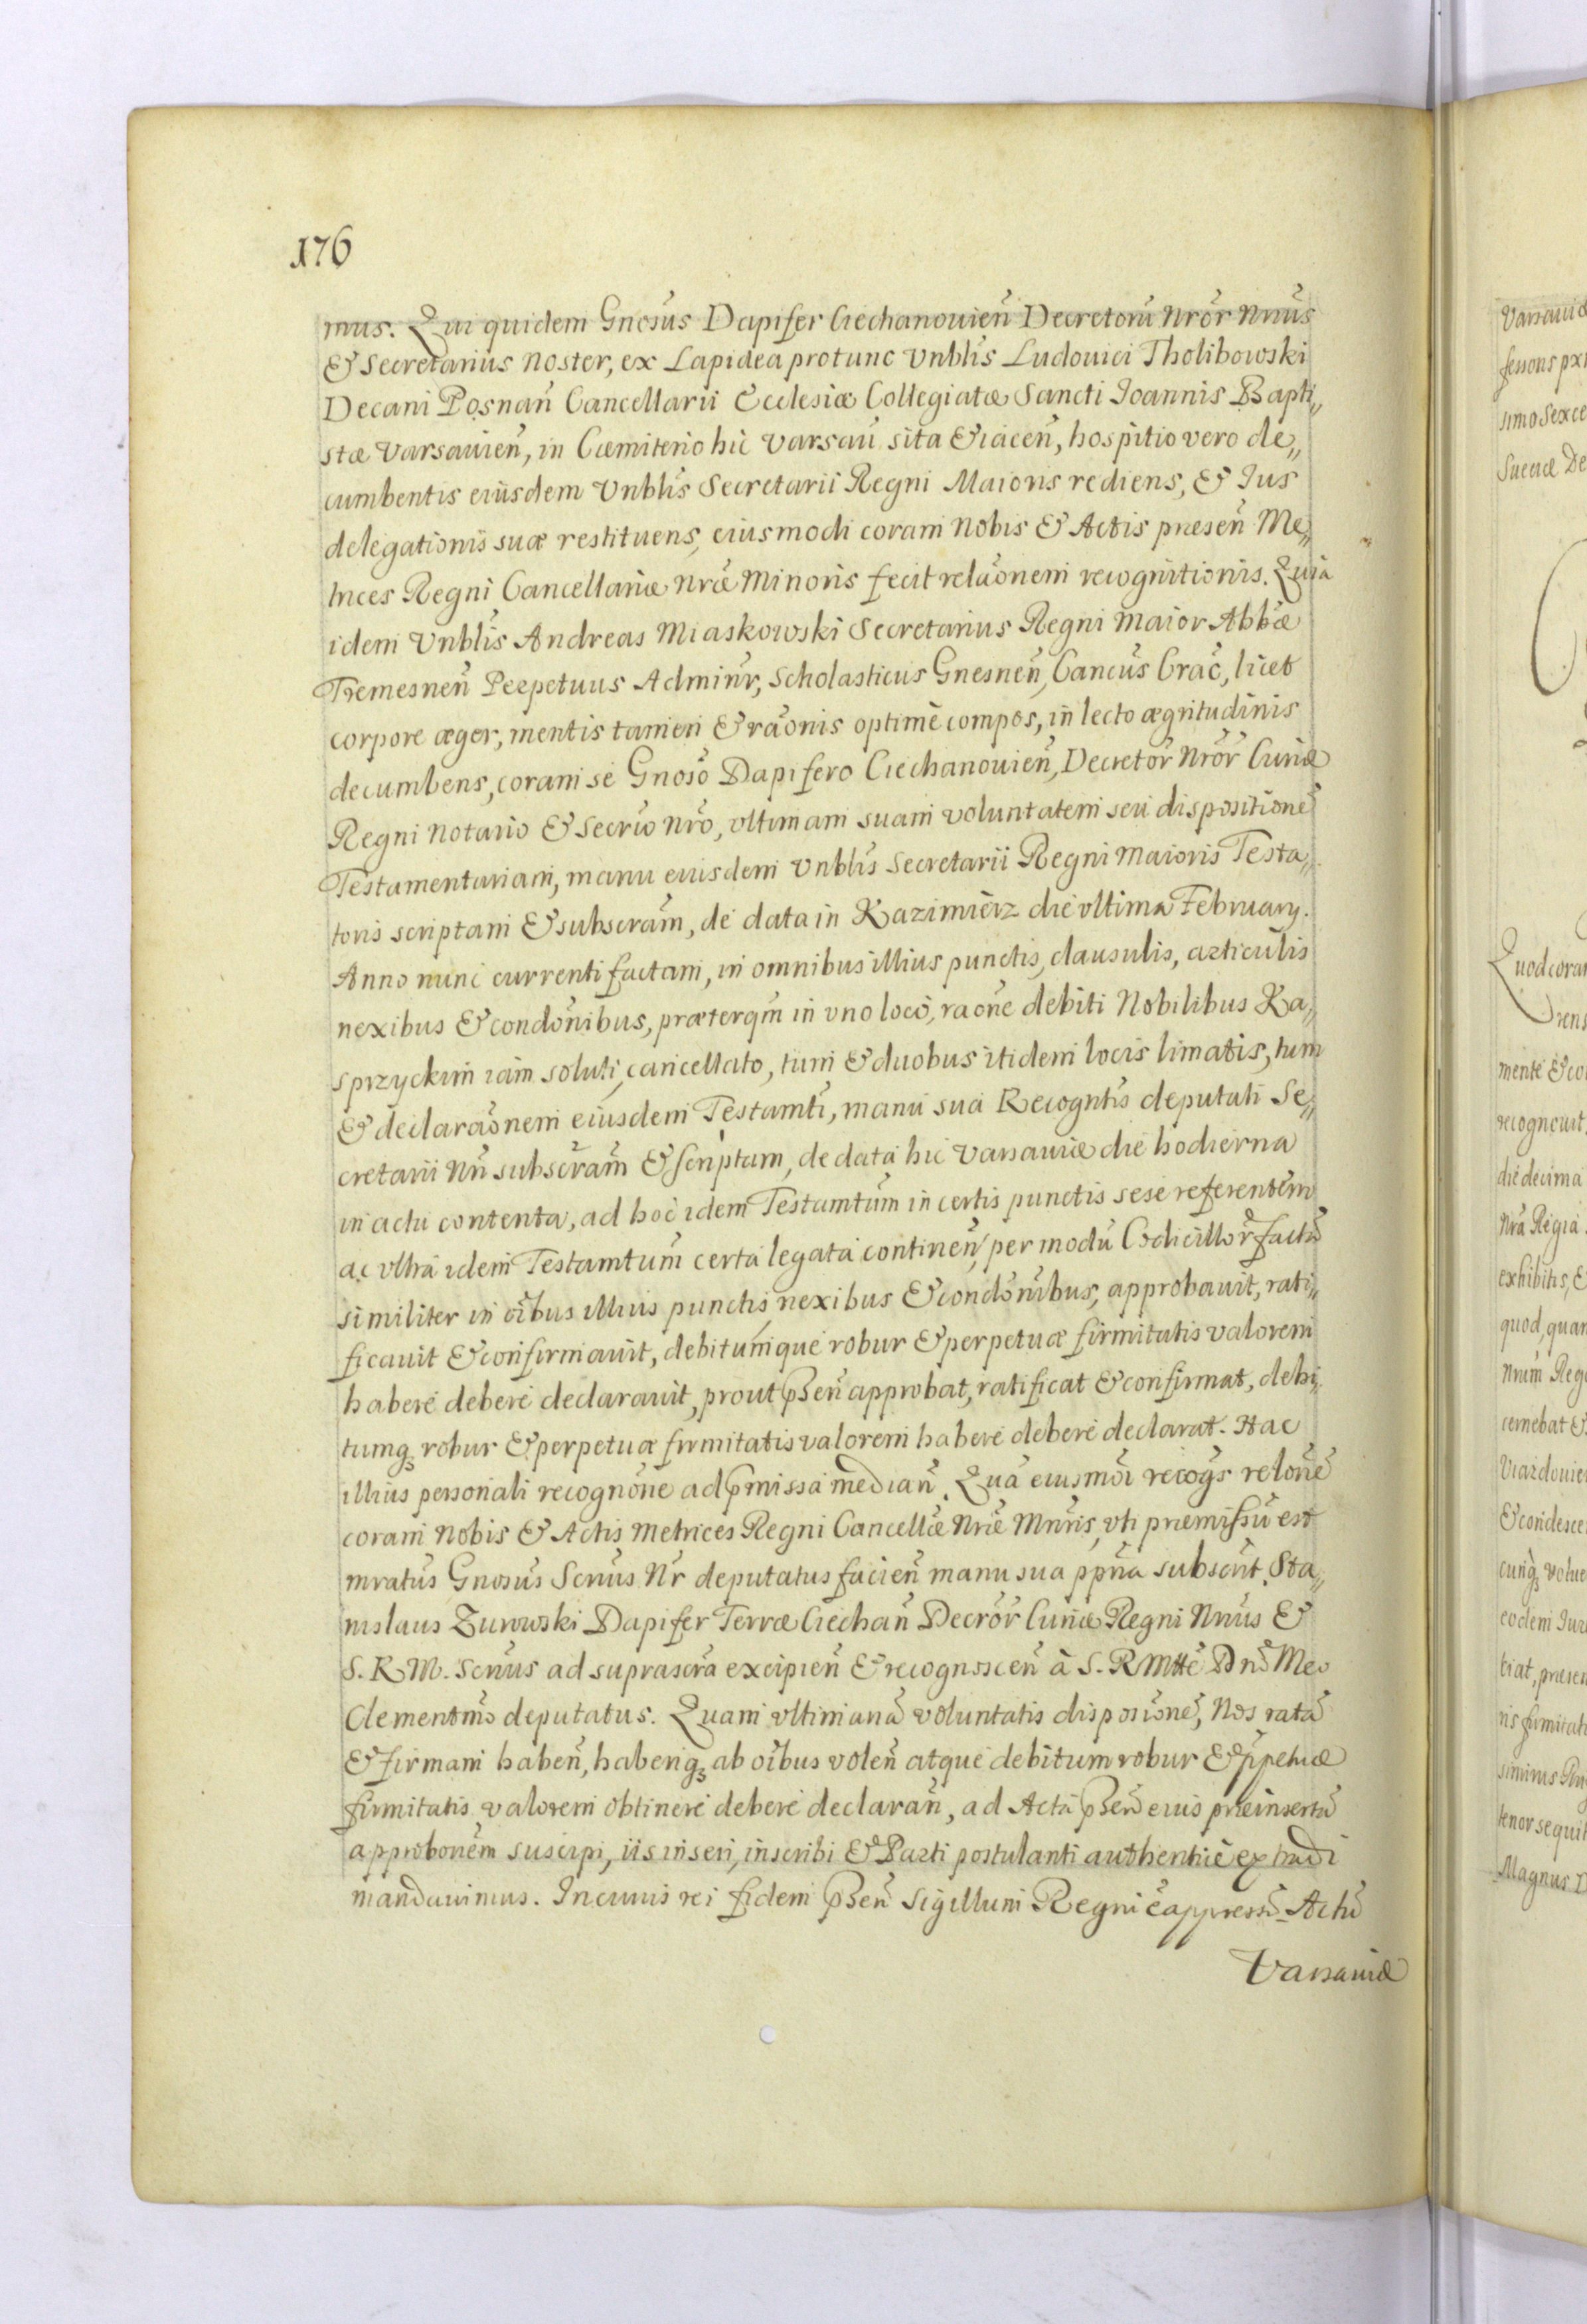 176
mus. Qui quidem Gnosus Dapifer Ciechanouień Decretorũ Nrõr Nrius
& Secretarius Noster, ex Lapidea protunc Vnblis Ludouici Tholibowski
Decani Posnań Cancellarii Ecclesiæ Collegiatæ Sancti Joannis Bapti„
stæ Varsauień, in Cæmiterio hic Varsaũ sita & iaceñ, hospitio vero de„
cumbentis eiusdem Vnblis Secretarii Regni Maioris rediens, & Ius
delegationis suæ restituens, eiusmodi coram Nobis & Actis præseñ Me„
trices Regni Cancellariæ Nræ Minoris fecit relãonem recognitionis. Quia
idem Vnblis Andreas Miaskowski Secretarius Regni Maior Abbæ
Tremesneñ Perpetuus Adminr, Scholasticus Gnesneñ, Cancus Crac, licet
corpore æger, mentis tamen & rãonis optimè compos, in lecto ægritudinis
decumbens, coram se Gnoso Dapifero Ciechanouień, Decretõr Nrõr Curiæ
Regni Notario & Secrio Nro, vltimam suam voluntatem seu dispositionẽ
Testamentariam, manu eiusdem Vnblis Secretarii Regni Maioris Testa„
toris scriptam & subscram, de data in Kazimierz die vltima February.
Anno nunc currenti factam, in omnibus illius punctis, clausulis, articulis
nexibus & condonibus, præterqm in vno loco, raone debiti Nobilibus Ka„
sprzyckim iam soluti, cancellato, tum & duobus itidem locis limatis, tum
& declaraonem eiusdem Testamti, manu sua Recogntis deputati Se„
cretarii Nri subscram & scriptam, de data hic Varsauiæ die hodierna
in actu contenta, ad hoc idem Testamtum in certis punctis sese referentem
ac vltra idem Testamtum certa legata contineñ, per modũ Codicillõr factũ
similiter in oibus illius punctis, nexibus & condonibus, approbauit, rati„
ficauit & confirmauit, debitumque robur & perpetuæ firmitatis valorem
habere debere declarauit, prout pseñ approbat, ratificat & confirmat, debi„
tumq robur & perpetuæ firmitatis valorem habere debere declarat. Hac
illius personali recognone ad pmissa mediañ. Qua eiusmoi recogs relonẽ
coram Nobis & Actis Metrices Regni Cancellæ Nræ Mnris, vti præmissũ est
mratus Gnosus Scrius Nr deputatus facieñ manu sua ppria subscrit. Sta„
nislaus Zurowski Dapifer Terræ Ciechañ Decrõr Curiæ Regni Nrius &
S. R. M. Scrius ad suprascra excipieñ & recognosceñ à S. R Mtte Dnõ Meo
Clementmo deputatus. Quam vltimanã voluntatis disposionẽ, Nos ratã
& firmam habeñ, haberiq ab oibus voleñ atque debitum robur & ppetuæ
firmitatis valorem obtinere debere declarañ, ad Acta pseñ euis præinsertũ
approbonem suscipi, iis inseri, inscribi & Parti postulanti authenticè extradi
mandauimus. In cuius rei fidem pseñ Sigillum Regni ẽ appressũ. Actũ
Varsauiæ
Varsauiæ
simo Sexce
Sueciæ De
Quod coram
mente & co
recognouit
die decima
Nra Regia
exhibitis, &
quod, quam
Nrum Reg
cernebat &
& condesce
eodem Iur
tiat, præsen
ris firmitati
tenor sequit
Magnus D